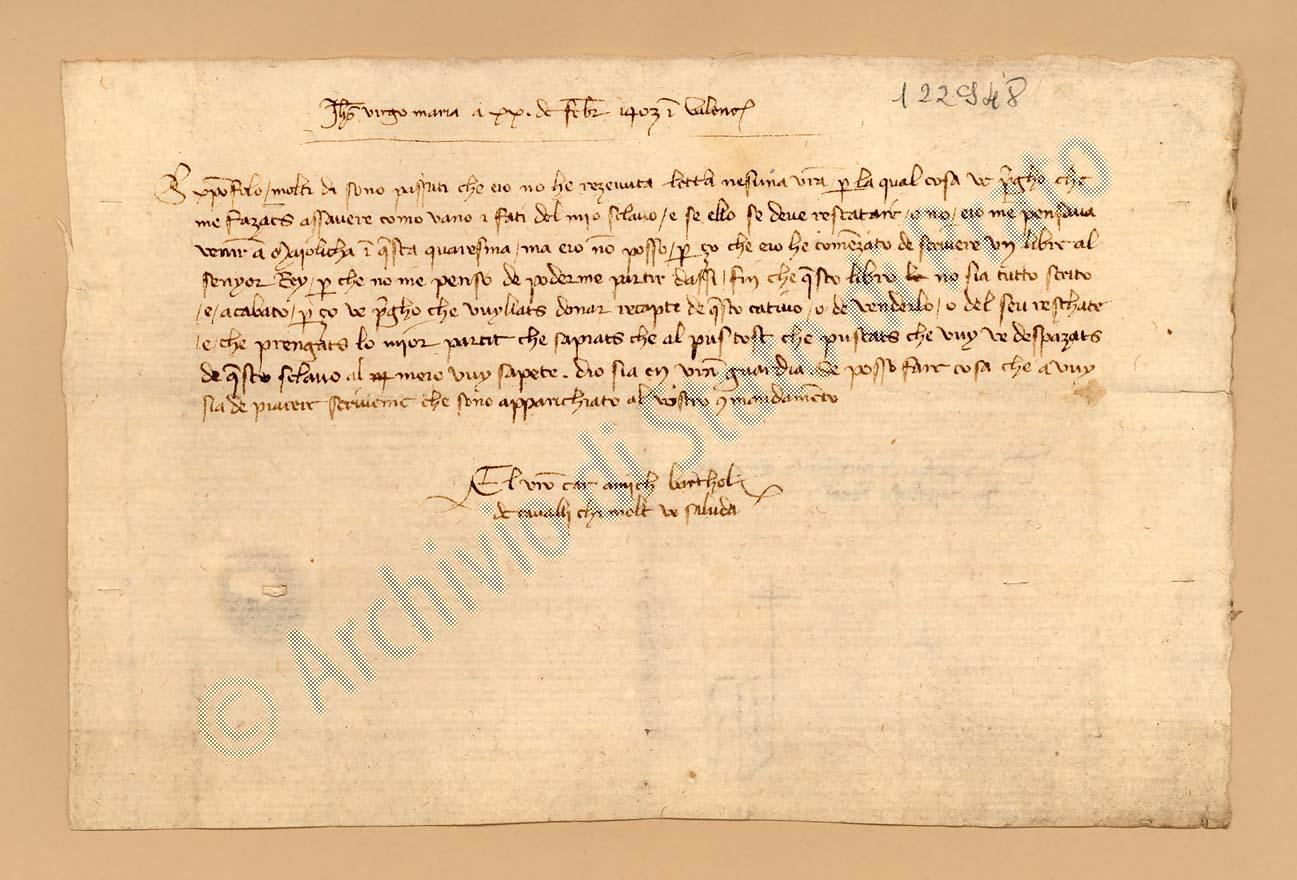 122948
Jhs virgo maria a xx. de febr 1403 i valenc
xpofolo / molti di sono passati che eio no he rezevuta lettera nesuna vra / p la qual cosa ve pgho che
me fazats assavere como vano i fati del mio sclavo / e se ello se deve rescatare / o no / eio me pensava
venir a Maiolicha i qsta quaresma / ma eio no posso / p ço che eio he comezato de scrivere un libre al
senyor Rey / p che no me penso de poderme partir dassi / fin che qsto libro no sia tutto scrito
/ e / acabato / p ço ve pgho che vuyllats donar recapte de qsto cativo / o de venderlo / o del seu reschate
/ e / che prengats lo mior partit che sapiats che al pus tost che puscats che vuy ve despazats
de qsto sclavo al meio vuy sapete. dio sia en vra guardia se posso fare cosa che a vuy
sia de piaceir scrivenie che sono apparichiato al vostro 9mandameto
El vro car amich barthol
de cavalli che molt ve saluda
© Archivio di Stato di Prato